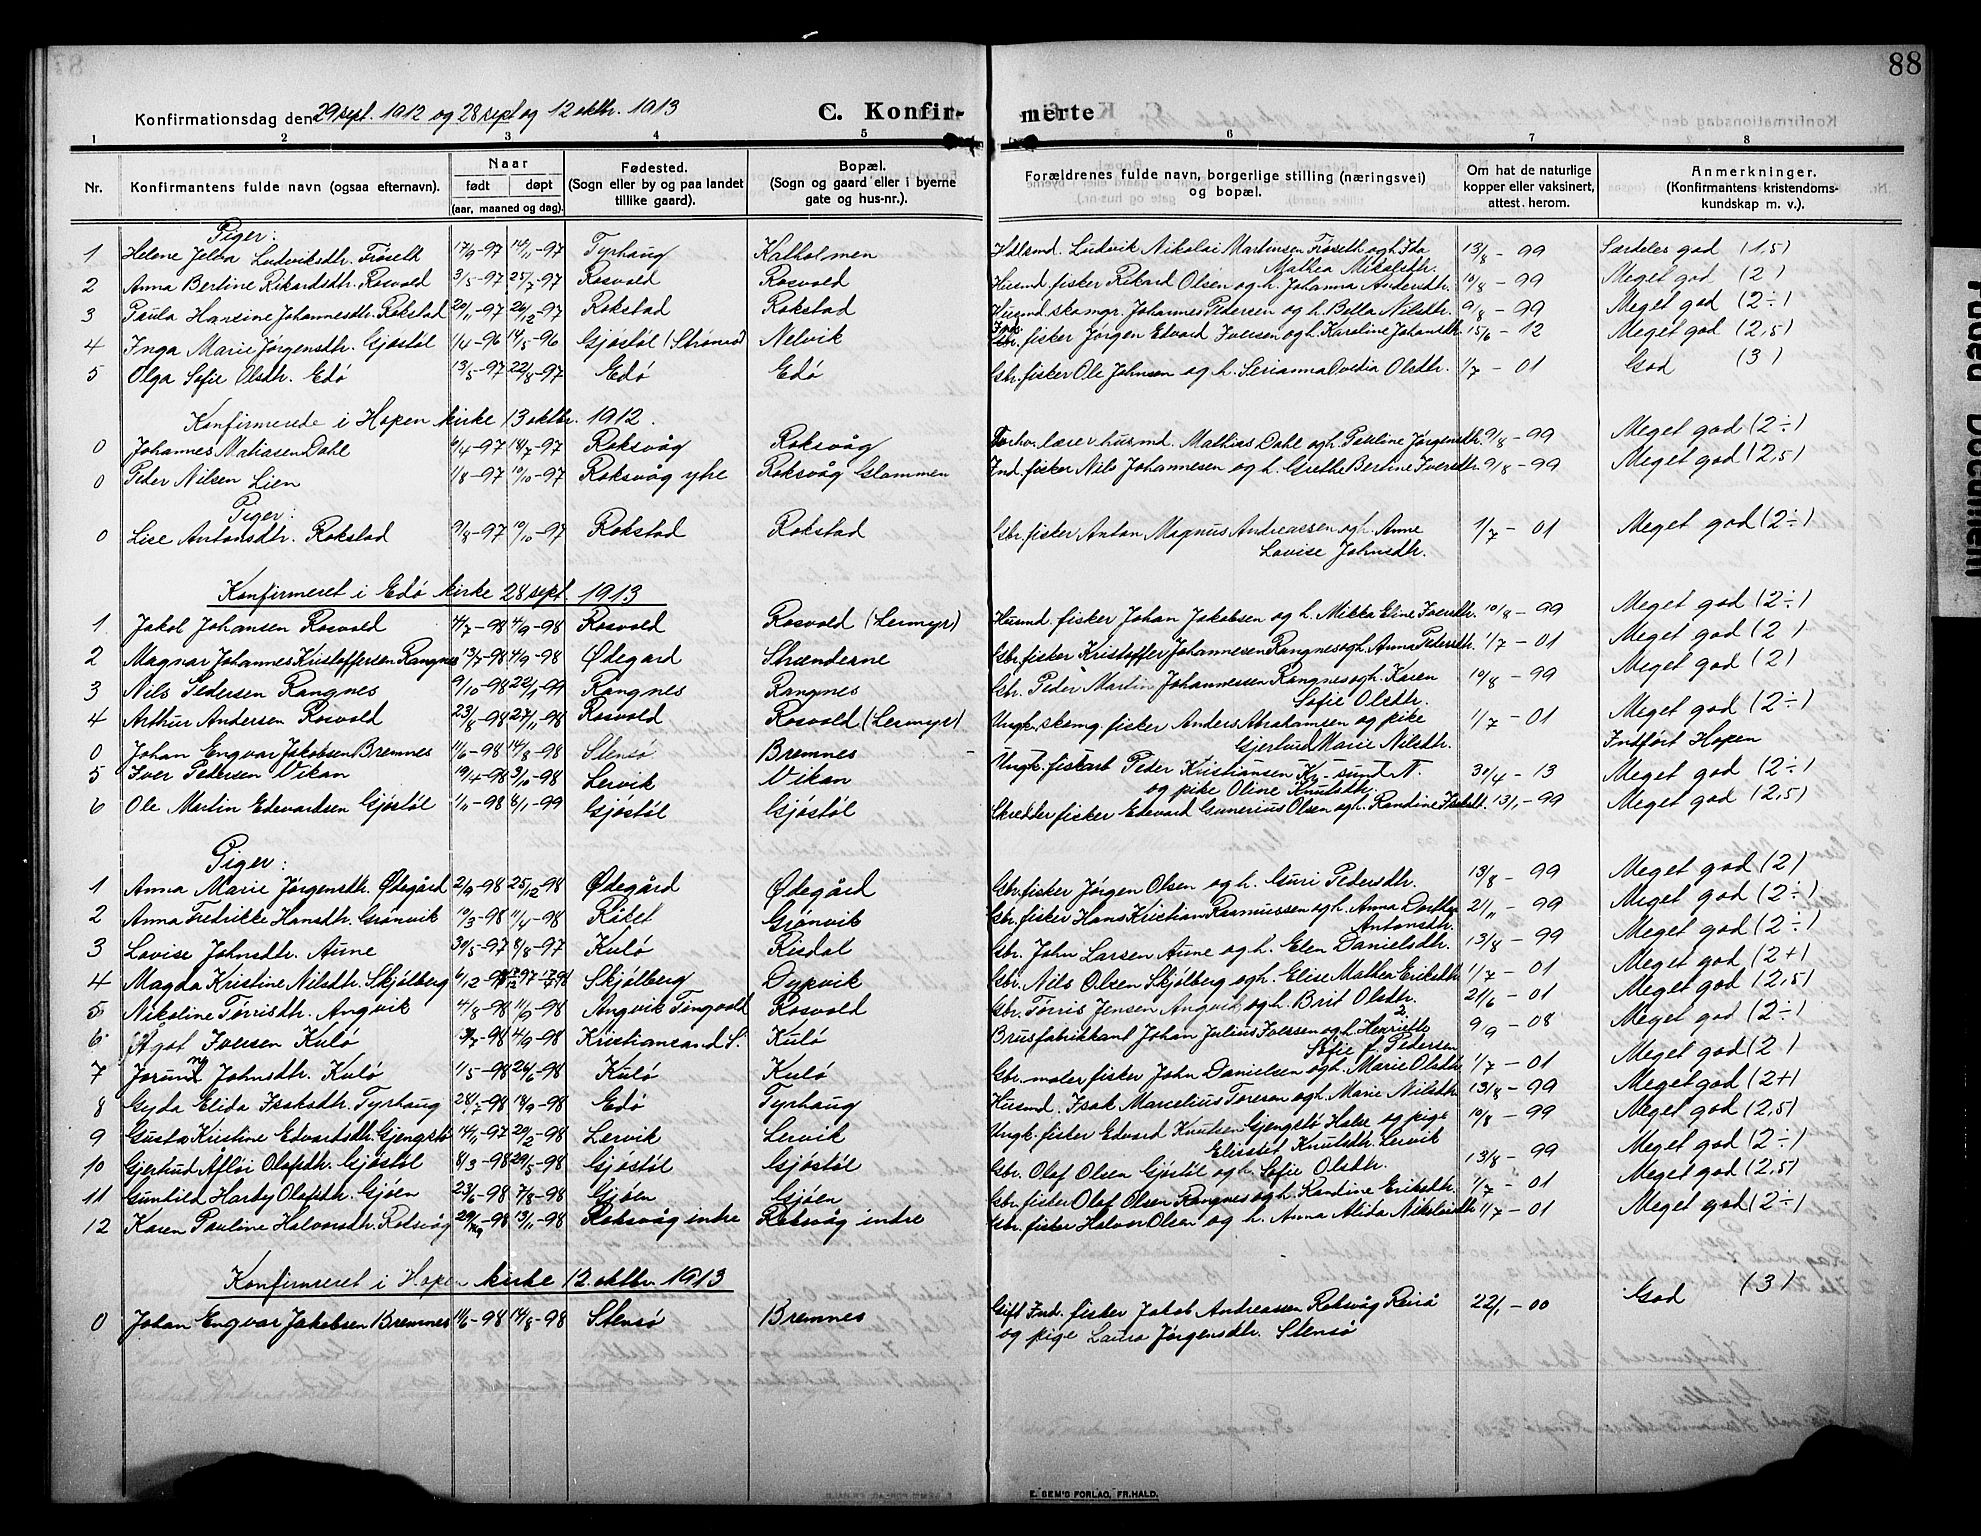 88
Konfirmationsdag den 29 sept. 1912 og 28 sept og 12 oktbr. 1913
C. Konfirmerte
1 2 3 4 5 6 7 8
Nr. Konfirmantens fulde navn (ogsaa efternavn). Naar født døpt (aar, maaned og dag). Fødested. (Sogn eller by og paa landet tillike gaard). Bopæl. (Sogn og gaard eller i byerne gate og hus-nr.). Forældrenes fulde navn, borgerlige stilling (næringsvei) og bopæl. Om hat de naturlige kopper eller vaksinert, attest. herom. Anmerkninger. (Konfirmantens kristendomskundskap m. v.).
Piger:
1 Helene Ludviksdtr. Frøseth 17/9-97 14/11-97 Tyrhaug Kalholmen Ludvik Nikolai Martinsen Frøseth og h. Ida Mathea Mikalsdtr. 13/8-99 Særdeles god (1,5)
2 Anna Bertine Rikardsdtr. Rosvold 3/5-97 25/7-97 Rosvold Rosvold Husmd. fisker Rikard Olsen og h. Johanna Andersdtr. 10/8-99 Meget god (2)
3 Paula Hansine Johannesdtr. Rokstad 20/11-97 26/12-97 Rokstad Rokstad Husmd. skomgr. Johannes Pedersen og h. Betla Nilsdtr. 9/8-99 Meget god (2÷)
4 Inga Marie Jørgensdtr. Gjøstøl 1/4-96 14/5-96 Gjøstøl Nelvik fisker Jørgen Edvard Iversen og h. Karoline Johansdtr. 15/6-12 Meget god (2,5)
5 Olga Sofie Olsdtr. Edø 13/5-97 22/8-97 Edø Edø Gbr. fisker Ole Johnsen og h. Serianna Ovedia Olsdtr. 1/7-01 God (3)
Konfirmerede i Hopen kirke 13 oktbr. 1912.
0 Johannes Matiasen Dahl 6/4-97 18/7-97 Roksvåg Roksvåg husmd. Mathias Dahl og h. Pauline Jørgensdtr. 9/8-99 Meget god (2÷)
0 Peder Nilsen Lien 1/8-97 10/10-97 Roksvåg ytre Roksvåg Glammen Ind. fisker Nils Johannesen og h. Grethe Bertine Iversdtr. 9/8-99 Meget god (2,5)
Piger:
0 Lise Antonsdtr. Rokstad 9/8-97 10/10-97 Rokstad Rokstad Gbr. fisker Anton Magnus Andreassen og h. Anne Lovise Johnsdtr. 1/7-01 Meget god (2÷)
Konfirmeret i Edø kirke 28 sept. 1913
1 Jakob Johansen Rosvold 4/7-98 4/9-98 Rosvold Rosvold (Leirmyr) Husmd. fisker Johan Jakobsen og h. Mikka Eline Iversdtr. 10/8-99 Meget god (2÷)
2 Magnar Johannes Kristoffersen Rangnes 13/7-98 4/9-98 Ødegård Strænderne Gbr. fisker Kristoffer Johannesen Rangnes og h. Anna Pedersdtr. 1/7-01 Meget god (2)
3 Nils Pedersen Rangnes 9/10-98 22/1-99 Rangnes Rangnes Gbr. Peder Martin Johannessen Rangnes og h. Karen Sofie Olsdtr. 10/8-99 Meget god (2)
4 Arthur Andersen Rosvold 23/8-98 27/11-98 Rosvold Rosvold (Leirmyr) Ungk. skomg. fisker Anders Abrahamsen og pike Gjertrud Marie Nilsdtr. 1/7-01 Meget god (2÷)
0 Johan Engvar Jakobsen Bremnes 11/6-98 14/8-98 Stensø Bremnes Indført Hopen
5 Iver Pedersen Vikan 19/4-98 3/10-98 Lervik Vikan Ungk. fiskarb Peder Kristiansen Kr.sund N. og pike Oline Knutsdtr. 30/4-13 Meget god (2÷)
6 Ole Martin Edevardsen Gjøstøl 1/11-98 8/1-99 Gjøstøl Gjøstøl Skredder fisker Edevard Gunerius Olsen og h. Randine 13/1-99 Meget god (2,5)
Piger:
1 Anna Marie Jørgensdtr. Ødegård 2/9-98 25/12-98 Ødegård Ødegård Gbr. fisker Jørgen Olsen og h. Guri Pedersdtr. 13/8-99 Meget god (2)
2 Anna Fredrikke Hansdtr. Grønvik 10/3-98 11/4-98 Riket Grønvik Gbr. fisker Hans Kristian Rasmussen og h. Anna Dorthea Antonsdtr. 21/11-99 Meget god (2÷)
3 Lovise Johnsdtr. Aune 30/5-97 8/8-97 Kulø Risdal Gbr. John Larsen Aune og h. Elen Danielsdtr. 13/8-99 Meget god (2÷)
4 Magda Kristine Nilsdtr. Skjølberg 6/12-97 Skjølberg Dypvik Gbr. Nils Olsen Skjølberg og h. Elise Mathea Eriksdtr. 1/7-01 Meget god (2+)
5 Nikoline Tørrisdtr. Angvik 4/8-98 11/9-98 Angvik Tingvold Rosvold Gbr. Tørris Jensen Angvik og h. Brit Olsdtr. 21/6-01 Meget god (2,5)
6 Ågot Iversen Kulø 4/9-98 Kristiansand S. Kulø Brusfabrikkant Johan Julius Iversen og h. Henriette Sofie f. Pedersen 9/9-08 Meget god (2÷)
7 Jorunn Johnsdtr. Kulø 1/5-98 26/6-98 Kulø Kulø Gbr. maler fisker John Danielsen og h. Marie Olsdtr. 1/7-01 Meget god (2)
8 Gyda Elida Isaksdtr. Tyrhaug 24/7-98 18/9-98 Edø Tyrhaug Husmd. Isak Marcelius Toresen og h. Marie Nilsdtr. 13/8-99 Meget god (2+)
9 Gusta Kristine Edvardsdtr. Gjengstø 14/11-97 20/2-98 Lervik Lervik Ungk. fisker Edvard Knutsen Gjengstø Halsa og pige Elisabet Knutsdtr. Lervik 10/8-99 Meget god (2,5)
10 Gjertrud Afløi Olafsdtr. Gjøstøl 8/3-98 29/5-98 Gjøstøl Gjøstøl Gbr. Olaf Olsen Gjøstøl og h. Sofie Olsdtr. 13/8-99 Meget god (2÷)
11 Gunhild Hardy Olafsdtr. Gjøen 23/6-98 7/8-98 Gjøen Gjøen Gbr. fisker Olaf Olsen Rangnes og h. Randine Eriksdtr. 1/7-01 Meget god (2,5)
12 Karen Pauline Halvorsdtr. Roksvåg 13/11-98 Roksvåg indre Roksvåg indre Gbr. fisker Halvor Olsen og h. Anna Alida Nikolaisdtr. 1/7-01 Meget god (2÷)
Konfirmeret i Hopen kirke 12. oktbr. 1913
0 Johan Engvar Jakobsen Bremnes 11/6-98 14/8-98 Stensø Bremnes Gift Ind. fisker Jakob Andreassen Roksvåg og pige Laura Jørgensdtr. Stensø 22/1-00 God (3)
E. SEM'S FORLAG, FR.HALD.